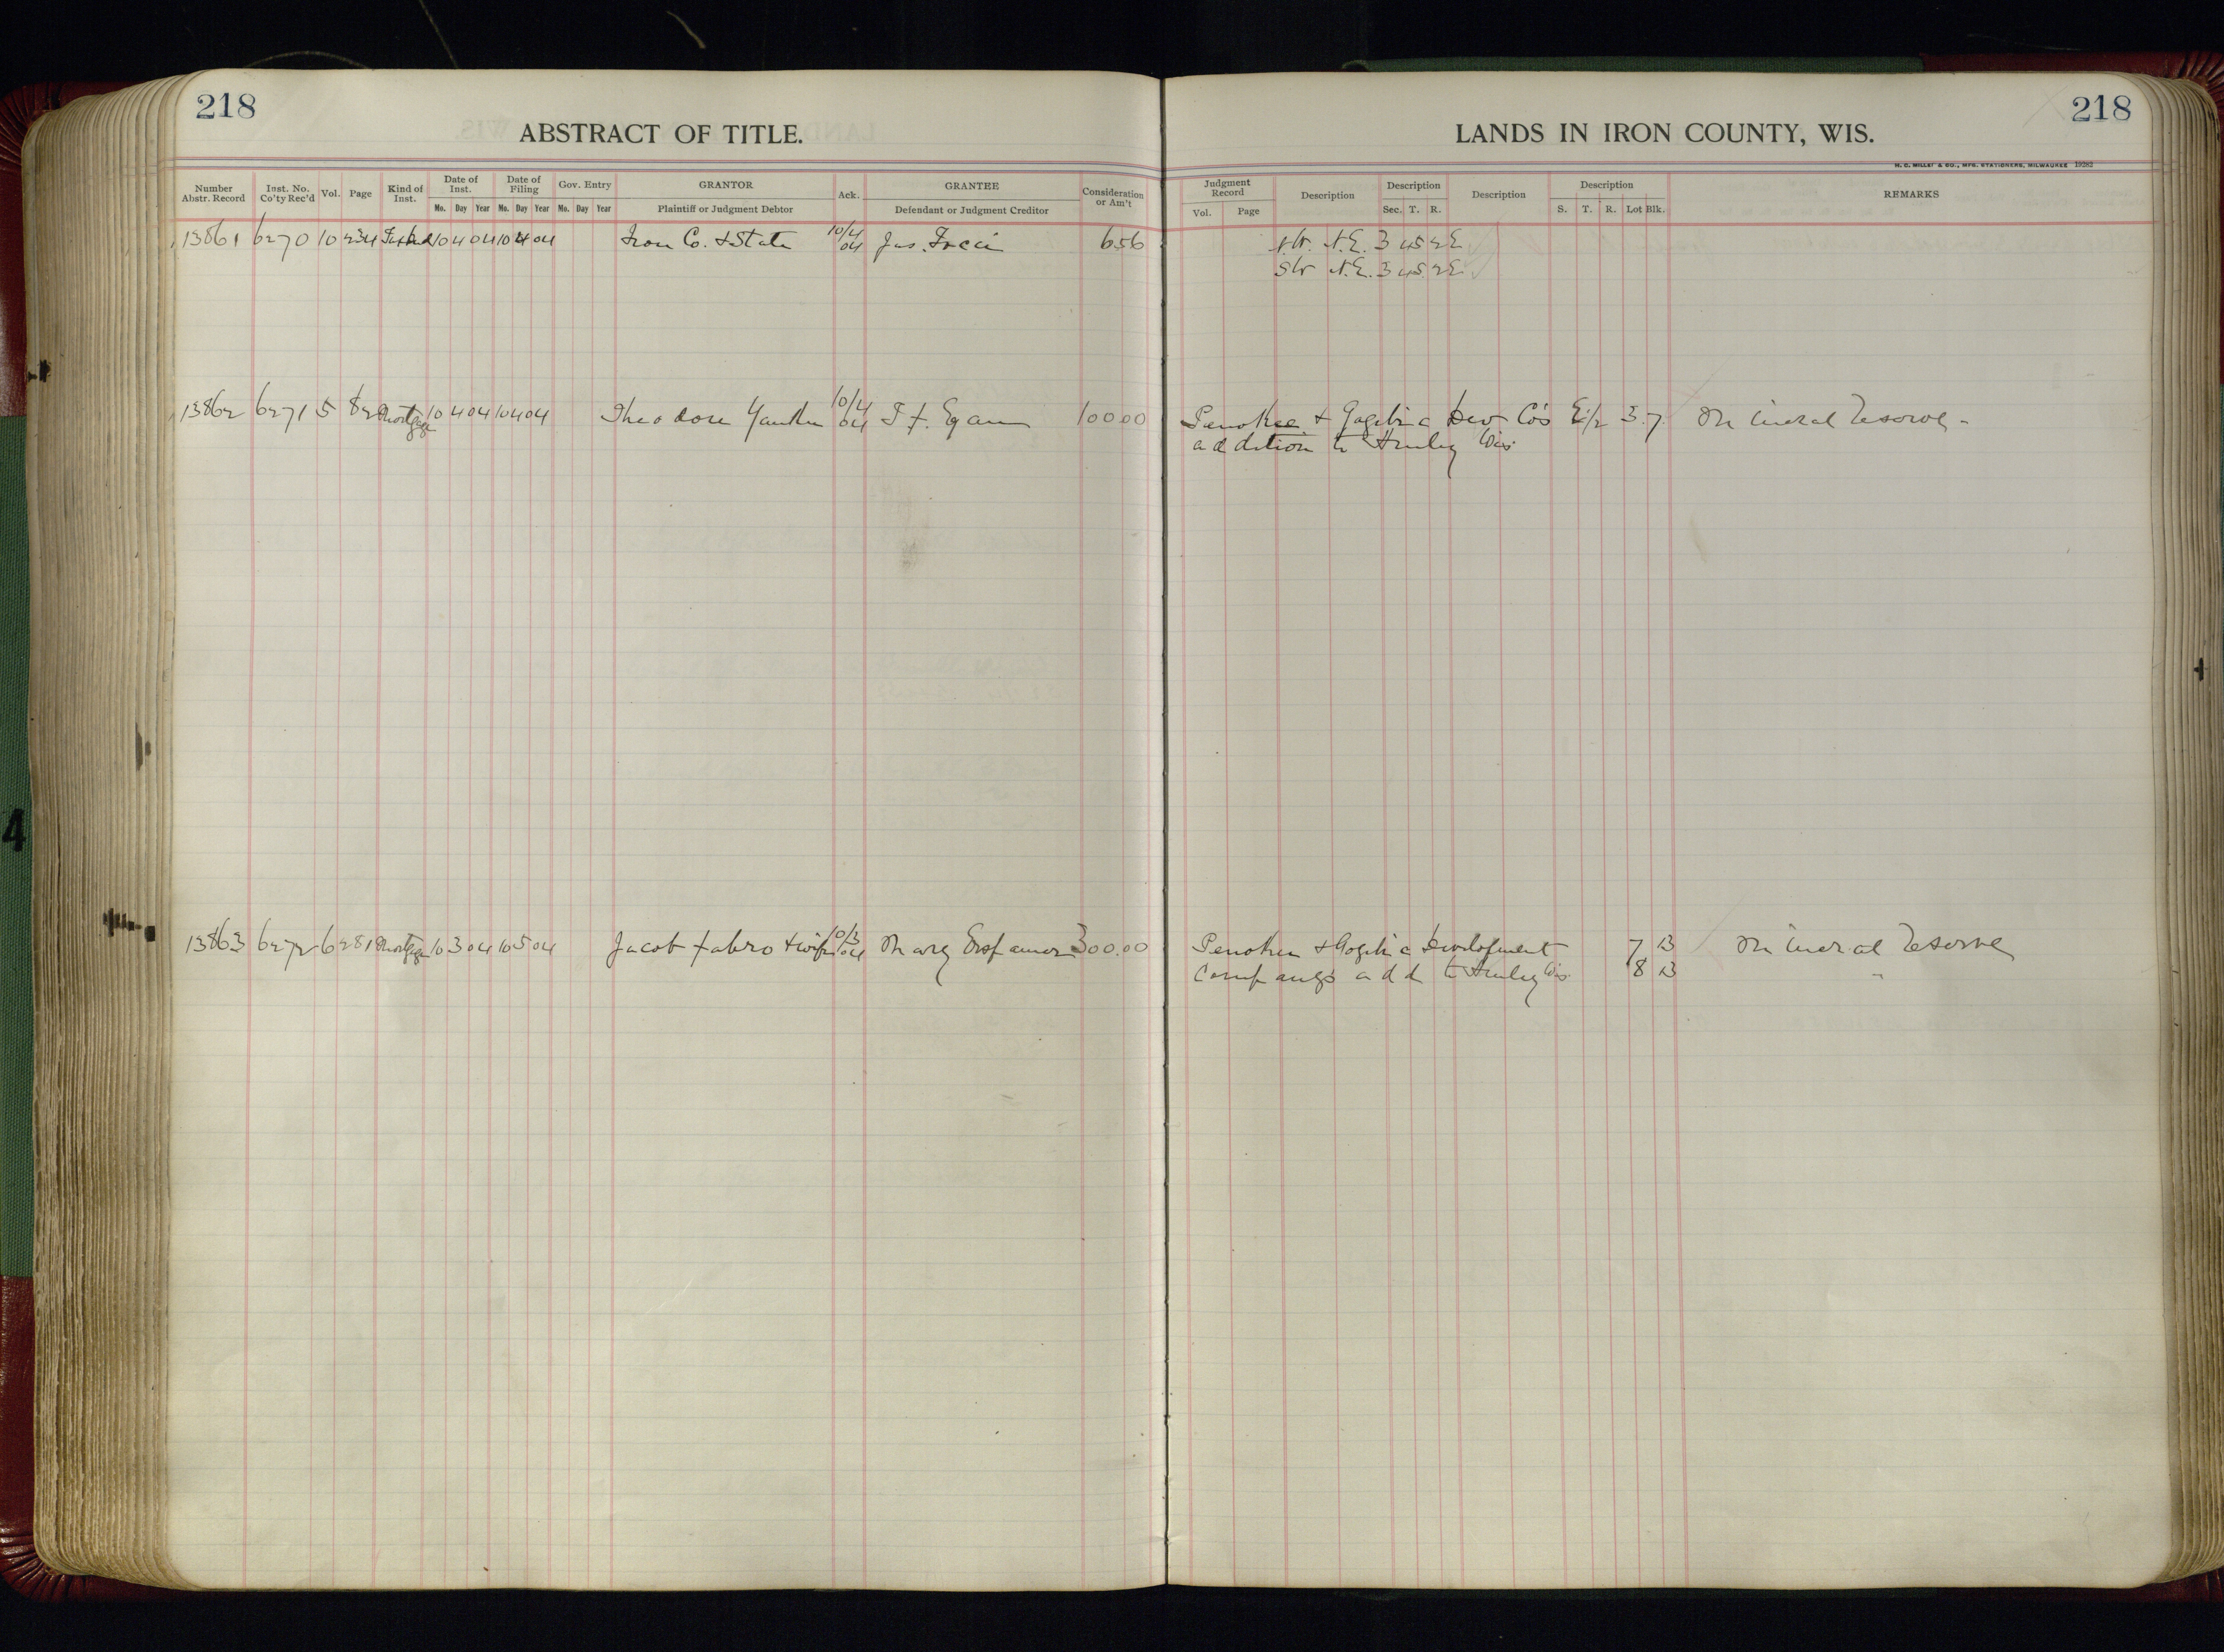 218
ABSTRACT OF TITLE.
LANDS IN IRON COUNTY, WIS.
218
H. C. MILLER & CO., MFG. STATIONERS, MILWAUKEE 19282
Number Abstr. Record Inst. No. Co'ty Rec'd Vol. Page Kind of Inst. Date of Inst. Date of Filing Gov. Entry GRANTOR Ack. GRANTEE Consideration or Am't Judgment Record Description Description Description Description REMARKS
Mo. Day Year Mo. Day Year Mo. Day Year Plaintiff or Judgment Debtor Defendant or Judgment Creditor Vol. Page Sec. T. R. S. T. R. Lot Blk.
13861 6270 10 234 10 4 04 10 4 04 Iron Co. & State 10/4 04 Jas. 656 N.E. 3 45 2E
SW N.E. 3 45 2E
13862 6271 5 82 Mortgage 10 4 04 10 4 04 Theodore 10/4 04 T. F. Egan 100 00 Penokee & Gogebic Dev Co's E 1/2 3. 7. Mineral reserve
addition to Hurley Wis.
13863 6272 6 281 Mortgage 10 3 04 10 5 04 Jacob Fabro & wife 10/3 04 Mary 300.00 Penokee & Gogebic Development 7 13 Mineral reserve
Company's add to Hurley Wis. 8 13 "
4